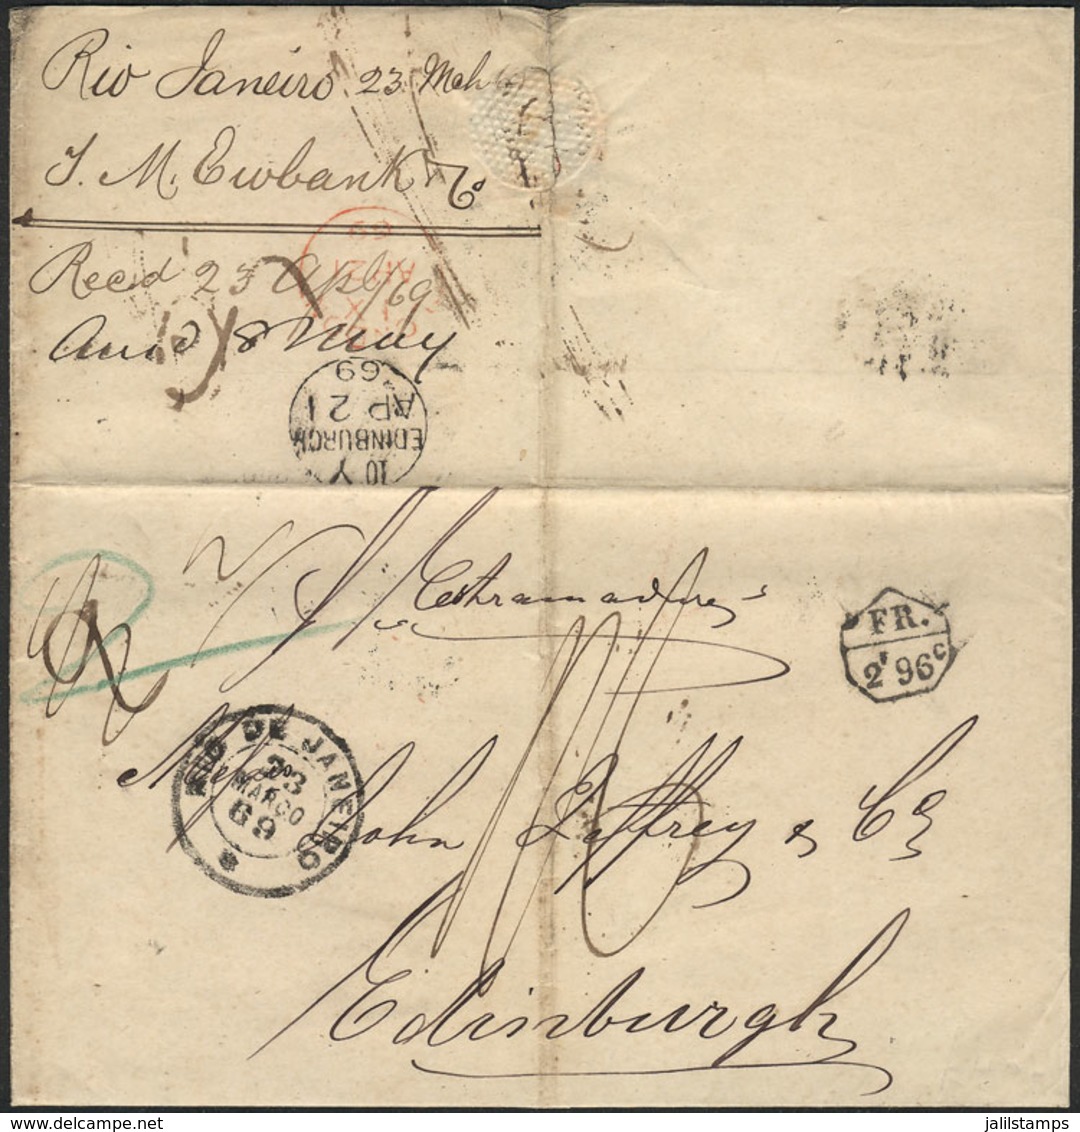 Rio Janeiro 23 Mch
J. M. Ewbank & Co
Recd 23 Apl /69
Ansd 8 May
69
AP 21
69
AP 21
EDINBURGH
10 Y
2
2
p Estramadure
FR.
2f 96c
RIO DE JANEIRO
23
MARÇO
69
Messrs John Jeffrey & Co
Edinburgh
jalilstamps